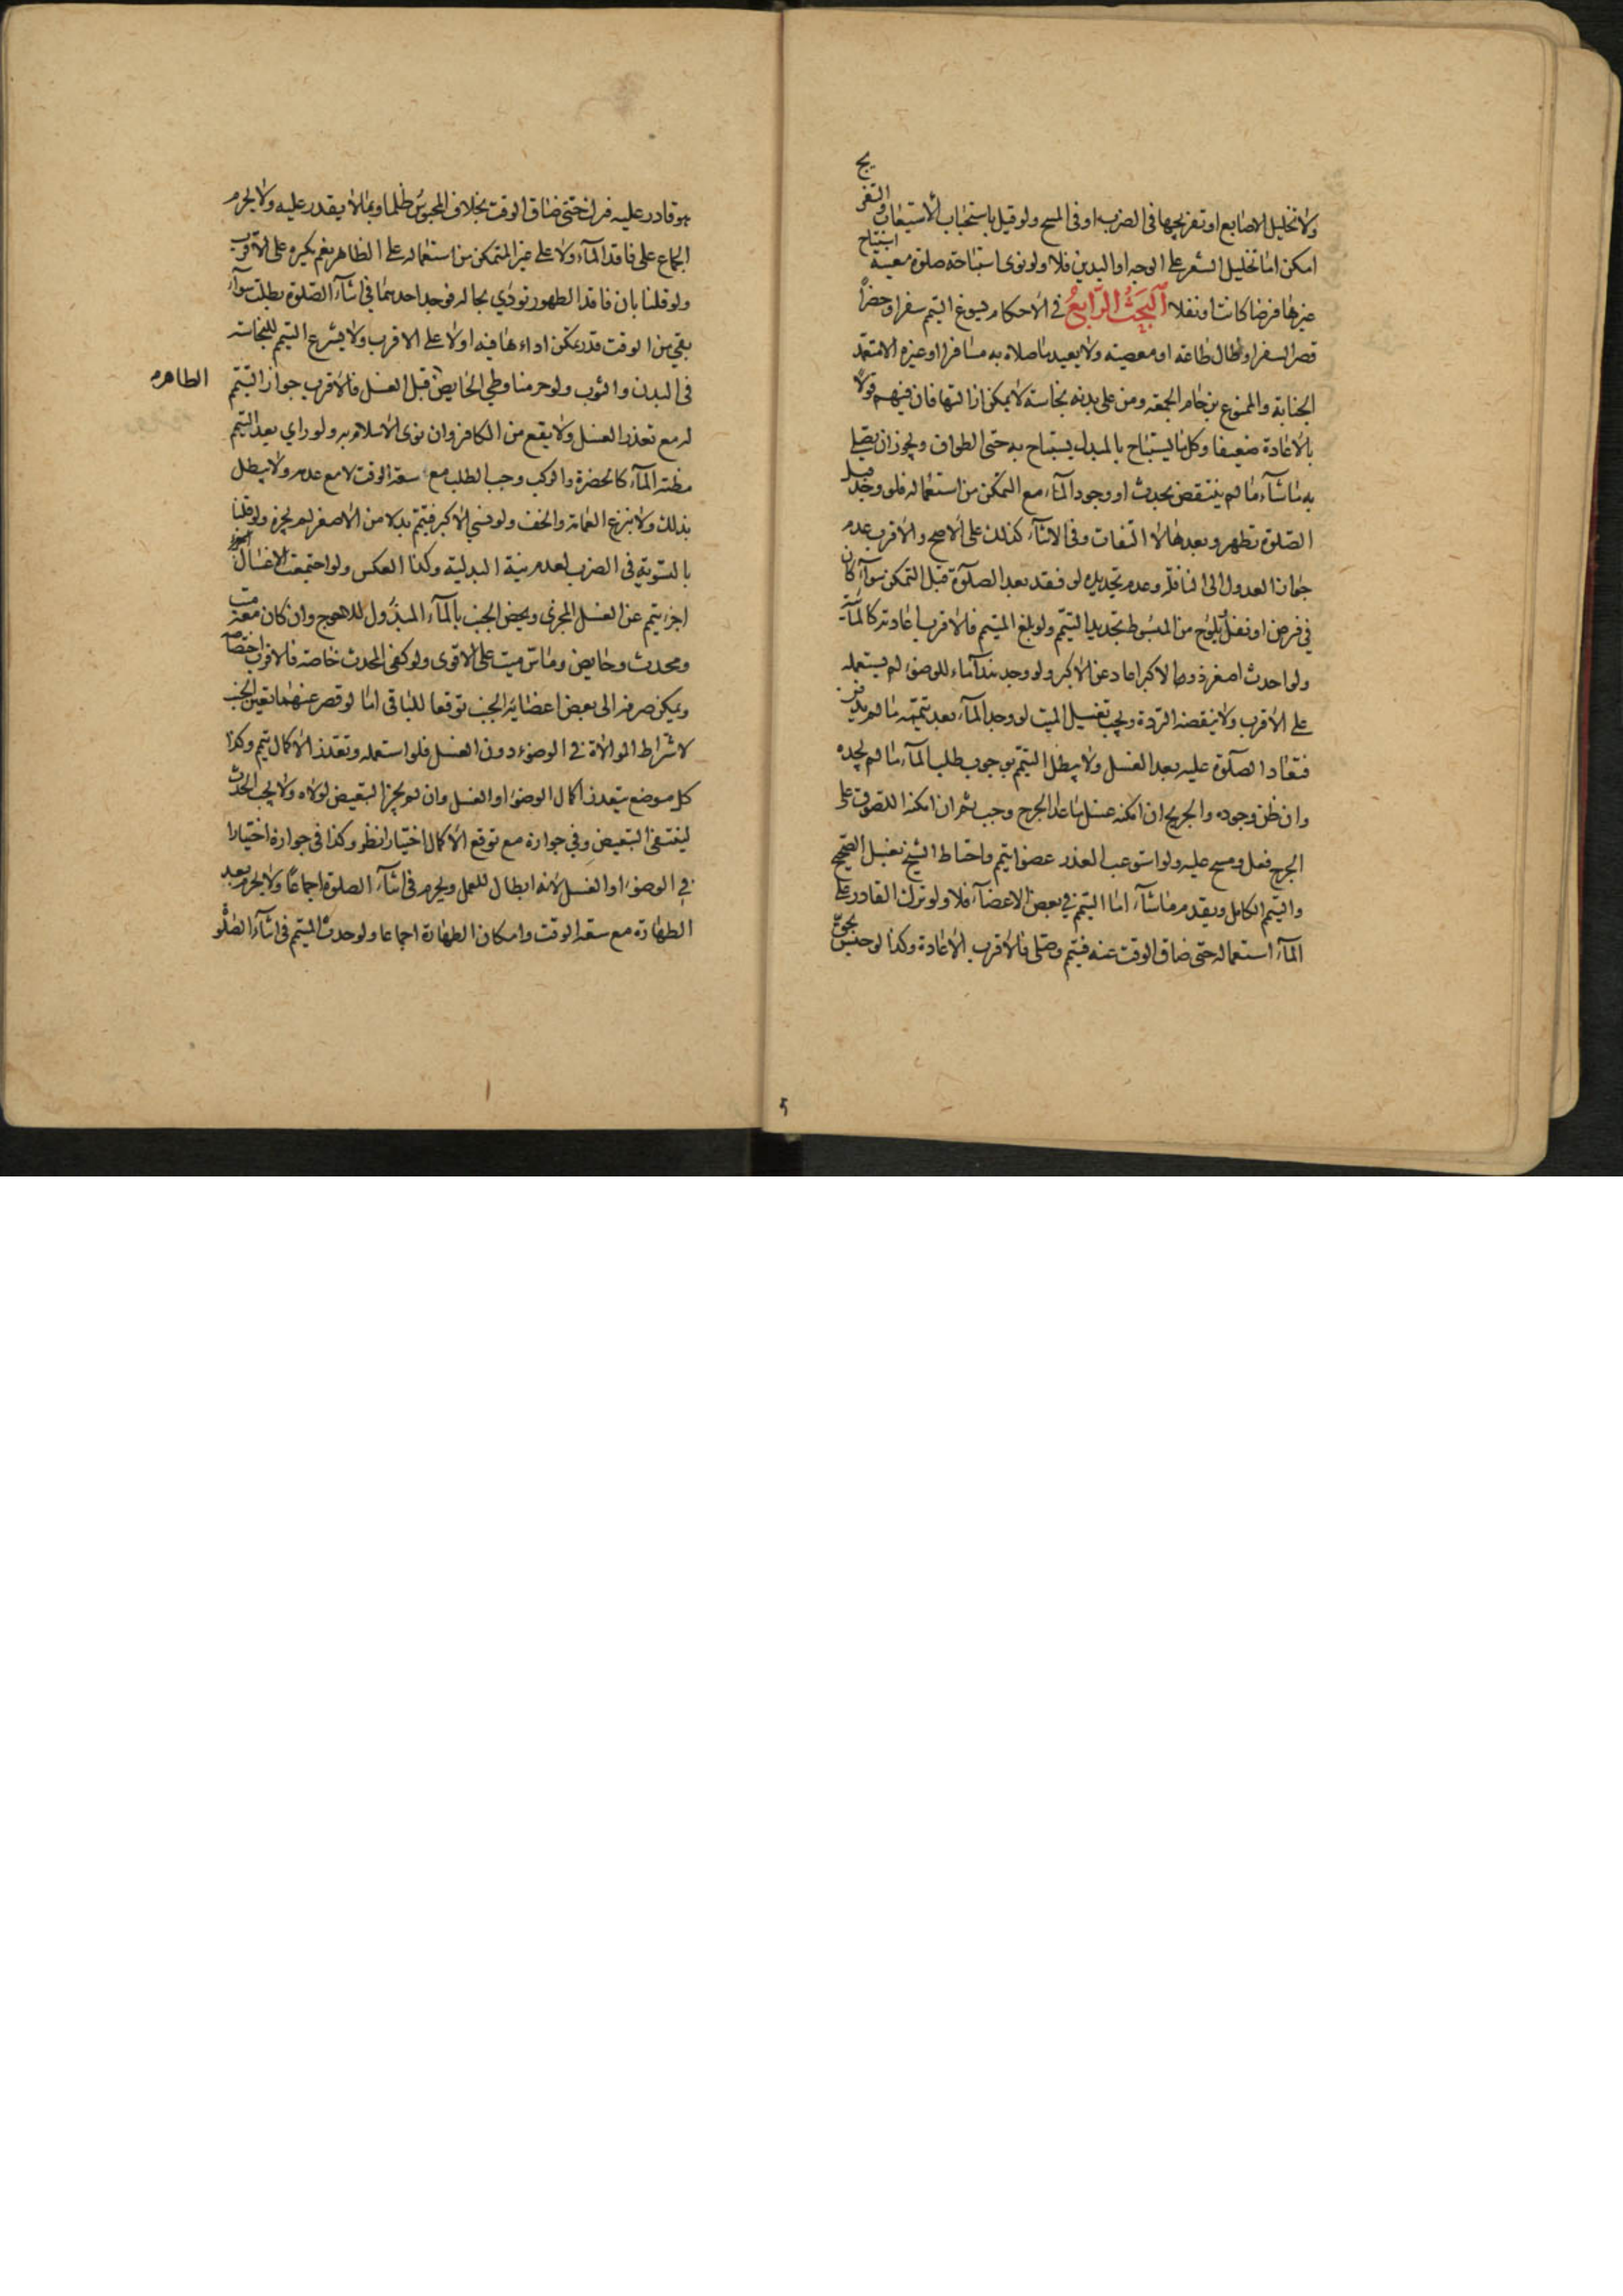 ولا تخليل الاصابع او تفريجها فى الضرب او فى المسح ولو قيل باستحباب الاستيعاب والتفريج
امكن اما تخليل الشعر على الوجه او اليدين فلا ولو نوى استباحة صلوة معينة استباح
غيرها فرضا كانت او نفلا البحث الرابع فى الاحكام يسوغ التيمم سفرا وحضرا
قصر السفر او طال طاعة او معصية ولا يعيد ما صلاه به مسافرا او غيره الا متعمد
الجنابة والممنوع بزحام الجمعة ومن على بدنه نجاسة لا يمكن ازالتها فان فيهم قولا
بالاعادة ضعيفا وكل ما يستباح بالمبدل يستباح به حتى الطواف ويجوز ان يصلى
به ما شاء ما لم ينتقض بحدث او وجود الماء مع التمكن من استعماله فلو وجد قبل
الصلوة تطهر وبعدها لا التفات وفى الاثناء كذلك على الاصح والاقرب عدم
جواز العدول الى النافلة وعدم تجديده لو فقد بعد الصلوة قبل التمكن سواء كان
في فرض او نفل يلوح من المبسوط تجديد التيمم ولو يمم الميت فالاقرب اعادته كالماء
ولو احدث اصغر ذو الاكبر اعاد عن الاكبر ولو وجد هذا ماء للوضوء لم يستعمله
على الاقرب ولا ينقضه الردة ويجب تغسيل الميت لو وجد الماء بعد تيممه ما لم يدفن
فتعاد الصلوة عليه بعد الغسل ولا يبطل التيمم بوجوب طلب الماء ما لم يجده
وان ظن وجوده والجريح ان امكنه غسل ما عدا الجرح وجب ثم ان امكنه اللصوق على
الجرح فعل ومسح عليه ولو استوعب العذر عضوا يتمم واحتاط الشيخ بغسل الصحيح
والتيمم الكامل ويقدم ما شاء اما التيمم في بعض الاعضاء فلا ولو ترك القادر على
الماء استعماله حتى ضاق الوقت عنه فيتمم وصلى فالاقرب الاعادة وكذا لو حبس بحق
هو قادر عليه فراخى حتى ضاق الوقت بخلاف المحبوس ظلما وبما لا يقدر عليه ولا يحرم
الجماع على فاقد الماء ولا على غير المتمكن من استعماله على الظاهر نعم يكره على الاقرب
ولو قلنا بان فاقد الطهور يؤدي بحاله فوجد احدهما في اثناء الصلوة بطلت سواء
بقي من الوقت قدر يمكن اداءها فيه او لا على الاقرب ولا يشرع التيمم للنجاسة
فى البدن والثوب ولو حرمنا وطي الحايض قبل الغسل فالاقرب جواز التيمم
الطاهره
له مع تعذر الغسل ولا يقع من الكافر وان نوى الاسلام به ولو راي بعد التيمم
مظنة الماء كالخضرة والركب وجب الطلب مع سعة الوقت لا مع عدمه ولا يبطل
بذلك ولا بنزع العمامة والخف ولو نسي الاكبر فتيمم بدلا من الاصغر لم يجزه ولو قلنا
بالتسوية فى الضرب لعدم نية البدلية وكذا العكس ولو اجتمعت الاغسال
اجزء يتمم عن الغسل المجزى ويخص الجنب بالماء المبذول للاحوج وان كان معه ميت
ومحدث وحايض وماس ميت على الاقوى ولو كفى المحدث خاصة فالاقرب اختصاصه
ويمكن صرفه الى بعض اعضاء الجنب توقعا للباقى اما لو قصر عنهما تعين الجنب
لاشتراط الموالاة في الوضوء دون الغسل فلو استعمله وتعذر الاكمال تيمم وكذا
كل موضع يتعذر اكمال الوضوء او الغسل وان لم يجز التبعيض لولاه ولا يجب الحدث
لينتفى التبعيض وفي جوازه مع توقع الاكمال اختيارا نظر وكذا فى جوازه اختيارا
في الوضوء او الغسل لانه ابطال للعمل ويحرم فى اثناء الصلوة اجماعا ولا يحرم بعد
الطهارة مع سعة الوقت وامكان الطهارة اجماعا ولو احدث المتيمم فى اثناء الصلو